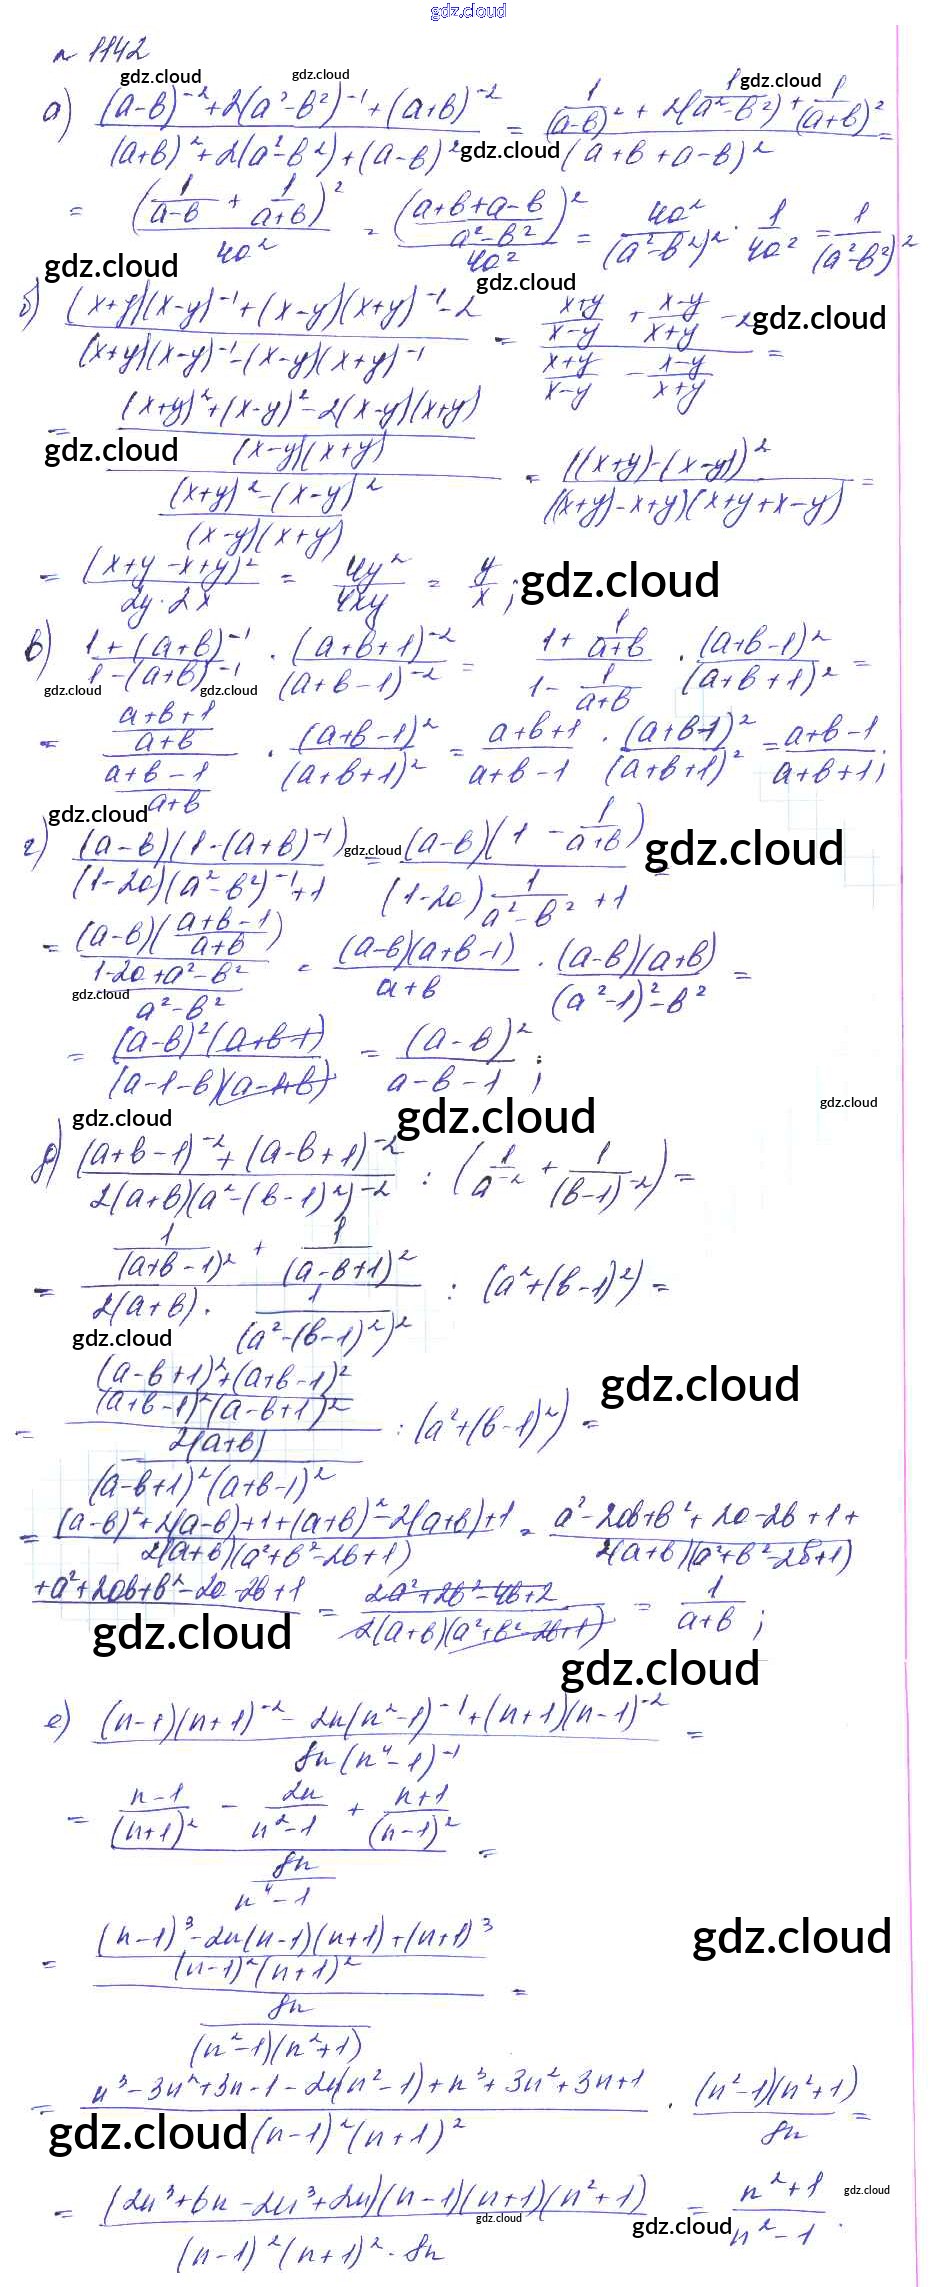 gdz.cloud
n 1142
gdz.cloud gdz.cloud gdz.cloud
а) ((a-b)^-2 + 2(a²-b²)^-1 + (a+b)^-2) / ((a+b)² + 2(a²-b²) + (a-b)²) = (1/(a-b)² + 2 1/(a²-b²) + 1/(a+b)²) / (a+b+a-b)² =
gdz.cloud
= (1/(a-b) + 1/(a+b))² / 4a² = ((a+b+a-b)/(a²-b²))² / 4a² = 4a²/(a²-b²)² · 1/4a² = 1/(a²-b²)²
gdz.cloud gdz.cloud
б) ((x+y)(x-y)^-1 + (x-y)(x+y)^-1 - 2) / ((x+y)(x-y)^-1 - (x-y)(x+y)^-1) = ((x+y)/(x-y) + (x-y)/(x+y) - 2) / ((x+y)/(x-y) - (x-y)/(x+y)) =
gdz.cloud
= (((x+y)² + (x-y)² - 2(x-y)(x+y)) / ((x-y)(x+y))) / (((x+y)² - (x-y)²) / ((x-y)(x+y))) = ((x+y)-(x-y))² / ((x+y)-x+y)(x+y+x-y) =
gdz.cloud
= (x+y-x+y)² / 2y·2x = 4y²/4xy = y/x ;
gdz.cloud
в) (1+(a+b)^-1) / (1-(a+b)^-1) · (a+b+1)^-2 / (a+b-1)^-2 = (1 + 1/(a+b)) / (1 - 1/(a+b)) · (a+b-1)² / (a+b+1)² =
gdz.cloud gdz.cloud
= ((a+b+1)/(a+b)) / ((a+b-1)/(a+b)) · (a+b-1)² / (a+b+1)² = (a+b+1)/(a+b-1) · (a+b-1)² / (a+b+1)² = (a+b-1)/(a+b+1) ;
gdz.cloud
г) (a-b)(1-(a+b)^-1) / ((1-2a)(a²-b²)^-1 + 1) = (a-b)(1 - 1/(a+b)) / ((1-2a) 1/(a²-b²) + 1) =
gdz.cloud gdz.cloud
= (a-b)((a+b-1)/(a+b)) / ((1-2a+a²-b²)/(a²-b²)) = (a-b)(a+b-1)/(a+b) · (a-b)(a+b)/((a²-1)²-b²) =
gdz.cloud
= (a-b)²(a+b-1) / (a-1-b)(a-1+b) = (a-b)²/(a-b-1) ;
gdz.cloud gdz.cloud gdz.cloud
д) ((a+b-1)^-2 + (a-b+1)^-2) / (2(a+b)(a²-(b-1)²)^-2) : (1/a^-2 + 1/(b-1)^-2) =
= (1/(a+b-1)² + 1/(a-b+1)²) / (2(a+b) · 1/(a²-(b-1)²)²) : (a²+(b-1)²) =
gdz.cloud
= (((a-b+1)²+(a+b-1)²) / ((a+b-1)²(a-b+1)²)) / (2(a+b) / ((a-b+1)²(a+b-1)²)) : (a²+(b-1)²) =
gdz.cloud
= ((a-b)²+2(a-b)+1+(a+b)²-2(a+b)+1) / (2(a+b)(a²+b²-2b+1)) = (a²-2ab+b²+2a-2b+1+ / 2(a+b)(a²+b²-2b+1)
+a²+2ab+b²-2a-2b+1 = (2a²+2b²-4b+2) / (2(a+b)(a²+b²-2b+1)) = 1/(a+b) ;
gdz.cloud
gdz.cloud
е) ((n-1)(n+1)^-2 - 2n(n²-1)^-1 + (n+1)(n-1)^-2) / (8n(n⁴-1)^-1) =
= ((n-1)/(n+1)² - 2n/(n²-1) + (n+1)/(n-1)²) / (8n/(n⁴-1)) =
gdz.cloud
= (((n-1)³-2n(n-1)(n+1)+(n+1)³) / ((n-1)²(n+1)²)) / (8n/((n²-1)(n²+1))) =
= (n³-3n²+3n-1-2n(n²-1)+n³+3n²+3n+1) / ((n-1)²(n+1)²) · (n²-1)(n²+1)/8n =
gdz.cloud
= (2n³+6n-2n³+2n)(n-1)(n+1)(n²+1) / ((n-1)²(n+1)²·8n) = (n²+1)/(n²-1) .
gdz.cloud gdz.cloud gdz.cloud